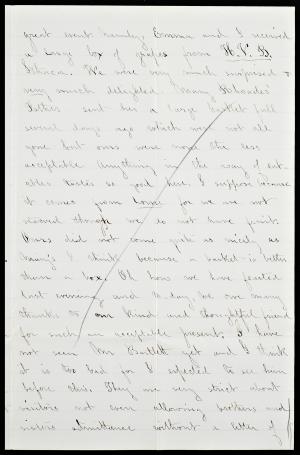 great event namely Emma and I received
a large box of grapes from H. V. B.
Ithaca. We were very much surprised &
very much delighted. Fanny Rhoades'
Father sent her a large basket full
several days ago which were not all
gone but ours were none the less
acceptable. Anything in the way of eat-
ables tastes so good here, I suppose because
it comes from home for we are not
starved though we do not have fruit.
Ours did not come quite as nicely as
Fanny's I think because a basket is better
than a box. Oh how we have feasted
last evening and to-day. We owe many
thanks to our kind and thoughtful friend
for such an acceptable present. I have
not seen Mr Bartlett yet and I think
it is too bad for I expected to see him
before this. They are very strict about
visitors not even allowing brothers and
sisters admittance without a letter of